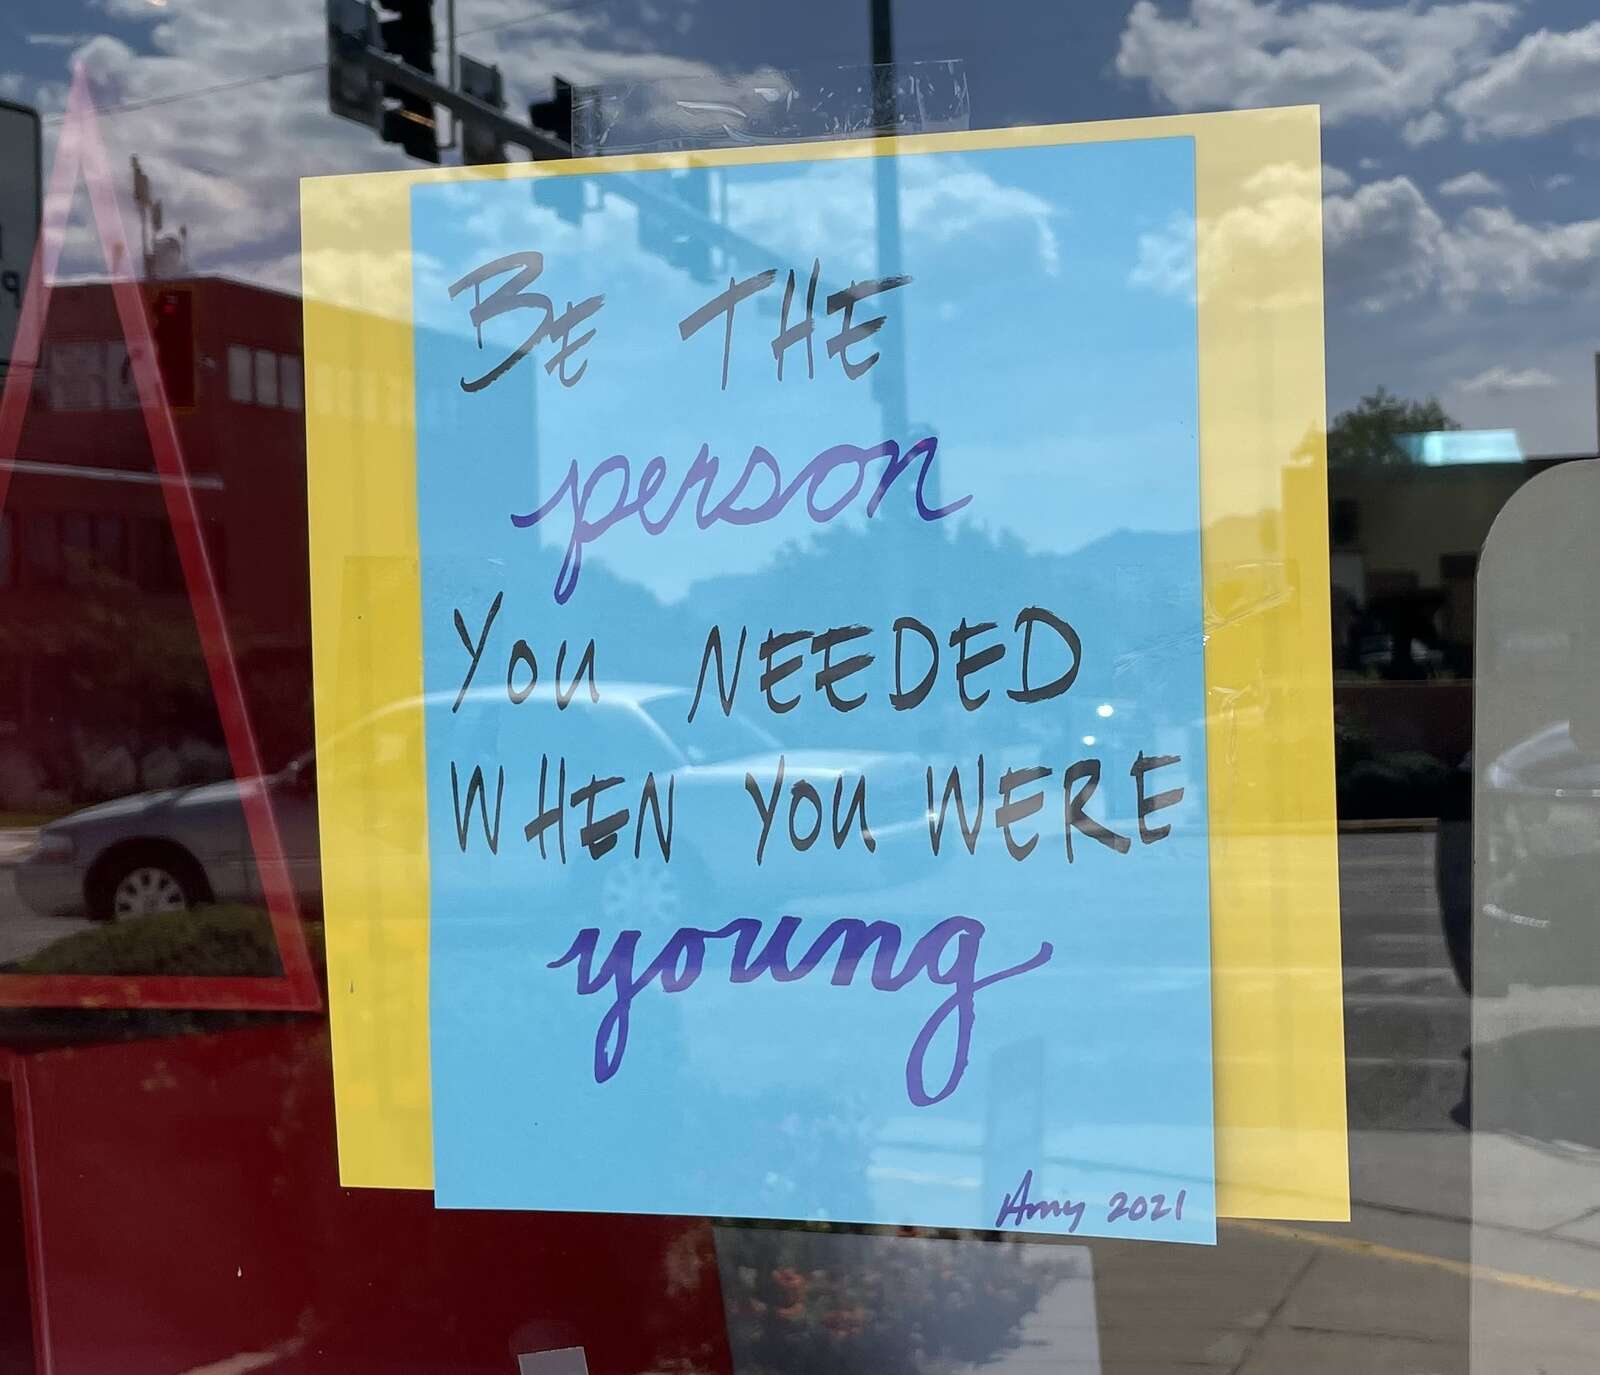 BE THE
person
YOU NEEDED
WHEN YOU WERE
young
Amy 2021